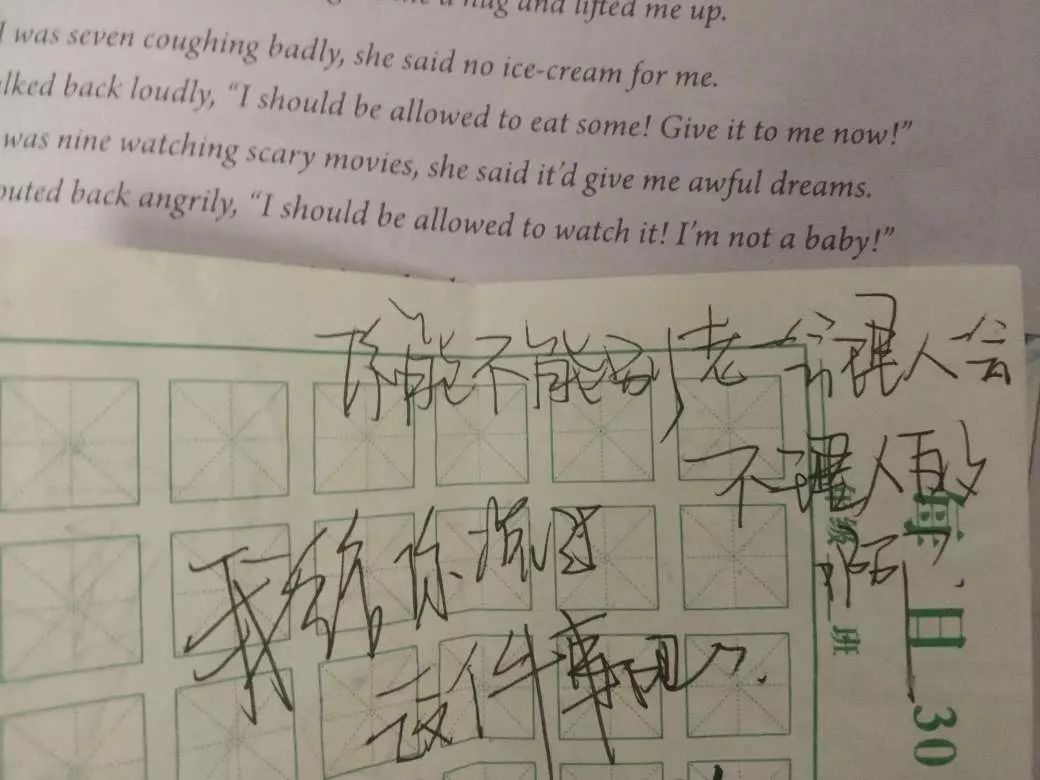 me a hug and lifted me up.
I was seven coughing badly, she said no ice-cream for me.
alked back loudly, “I should be allowed to eat some! Give it to me now!”
was nine watching scary movies, she said it'd give me awful dreams.
outed back angrily, “I should be allowed to watch it! I'm not a baby!”
你能不能别老一会理人一会
不理人的
我给你
这件事吧
级 班
每日 30